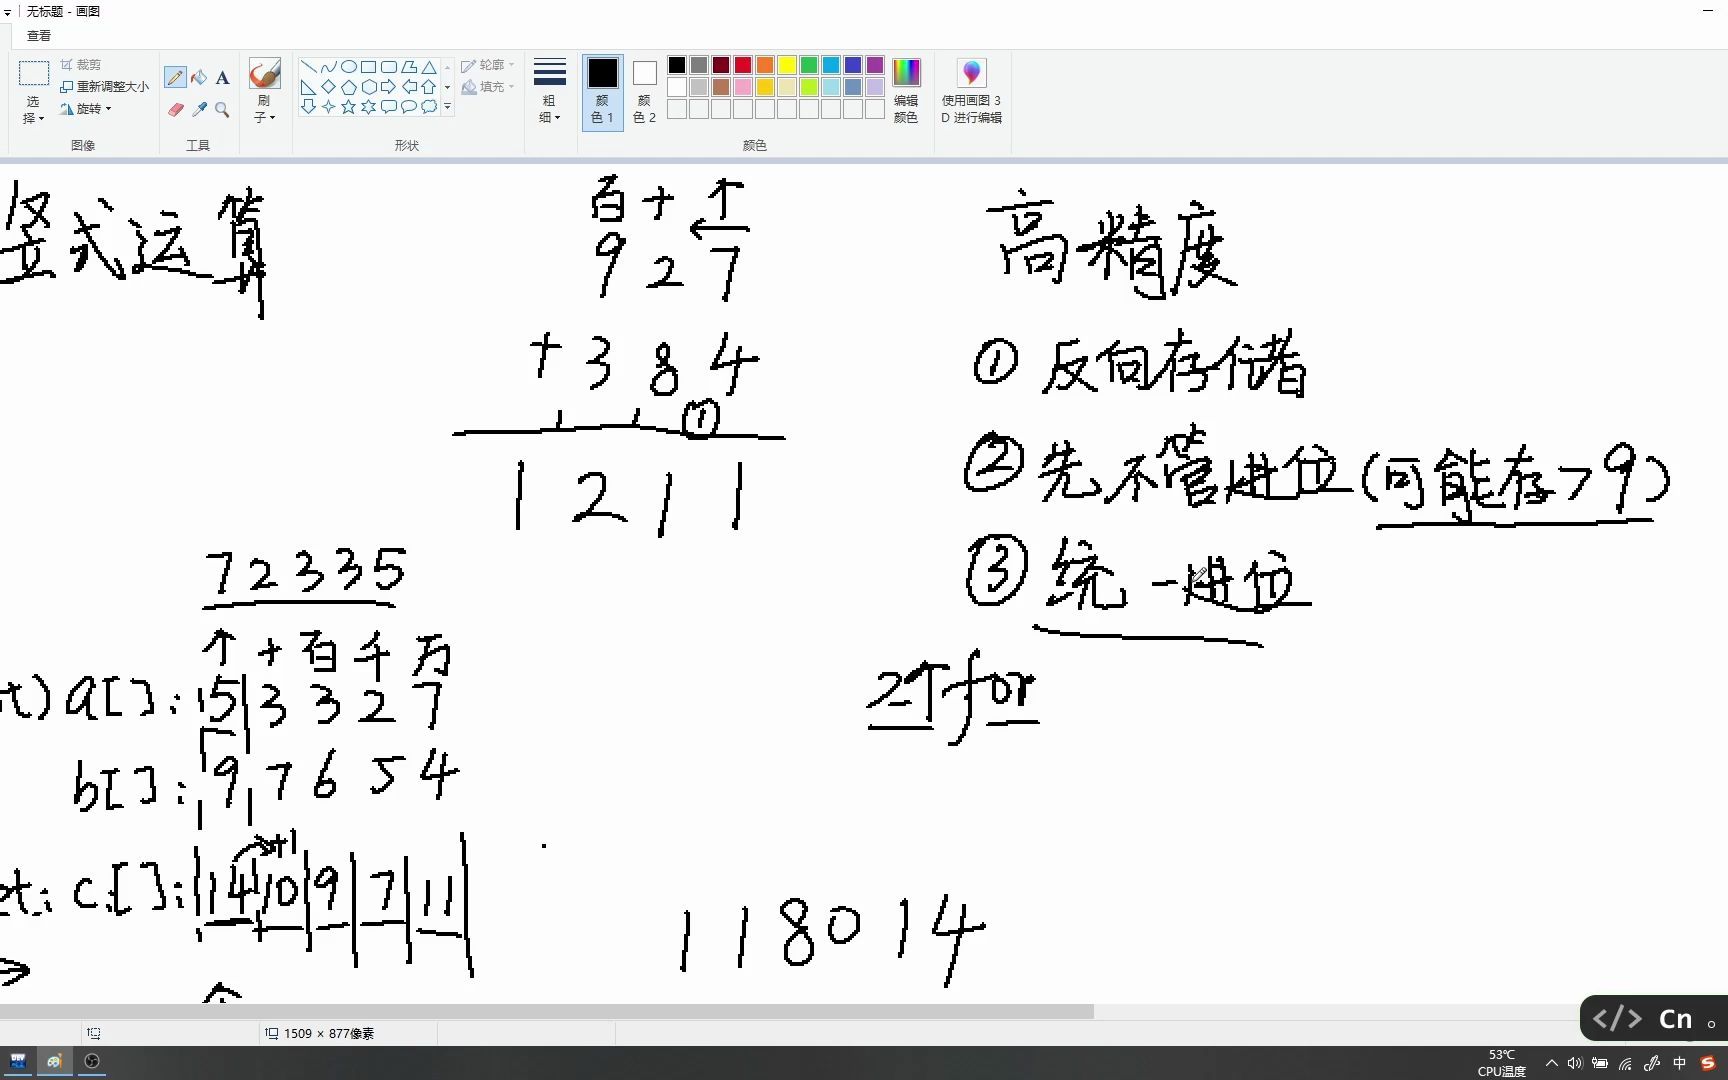 无标题 - 画图
查看
选择
裁剪
重新调整大小
旋转
图像
A
工具
刷子
形状
轮廓
填充
粗细
颜色 1
颜色 2
颜色
编辑颜色
使用画图 3D 进行编辑
竖式运算
百 十 个
9 2 7
+ 3 8 4
1 1 ①
1 2 1 1
高精度
① 反向存储
② 先不管进位(可能存>9)
③ 统一进位
2个for
72335
个 十 百 千 万
t) a[]: 5 3 3 2 7
b[]: 9 7 6 5 4
+1
et: c[]: 14 10 9 7 11
→
个
1 1 8 0 1 4
1509 × 877像素
</> Cn 。
DEV
53℃
CPU温度
中
S